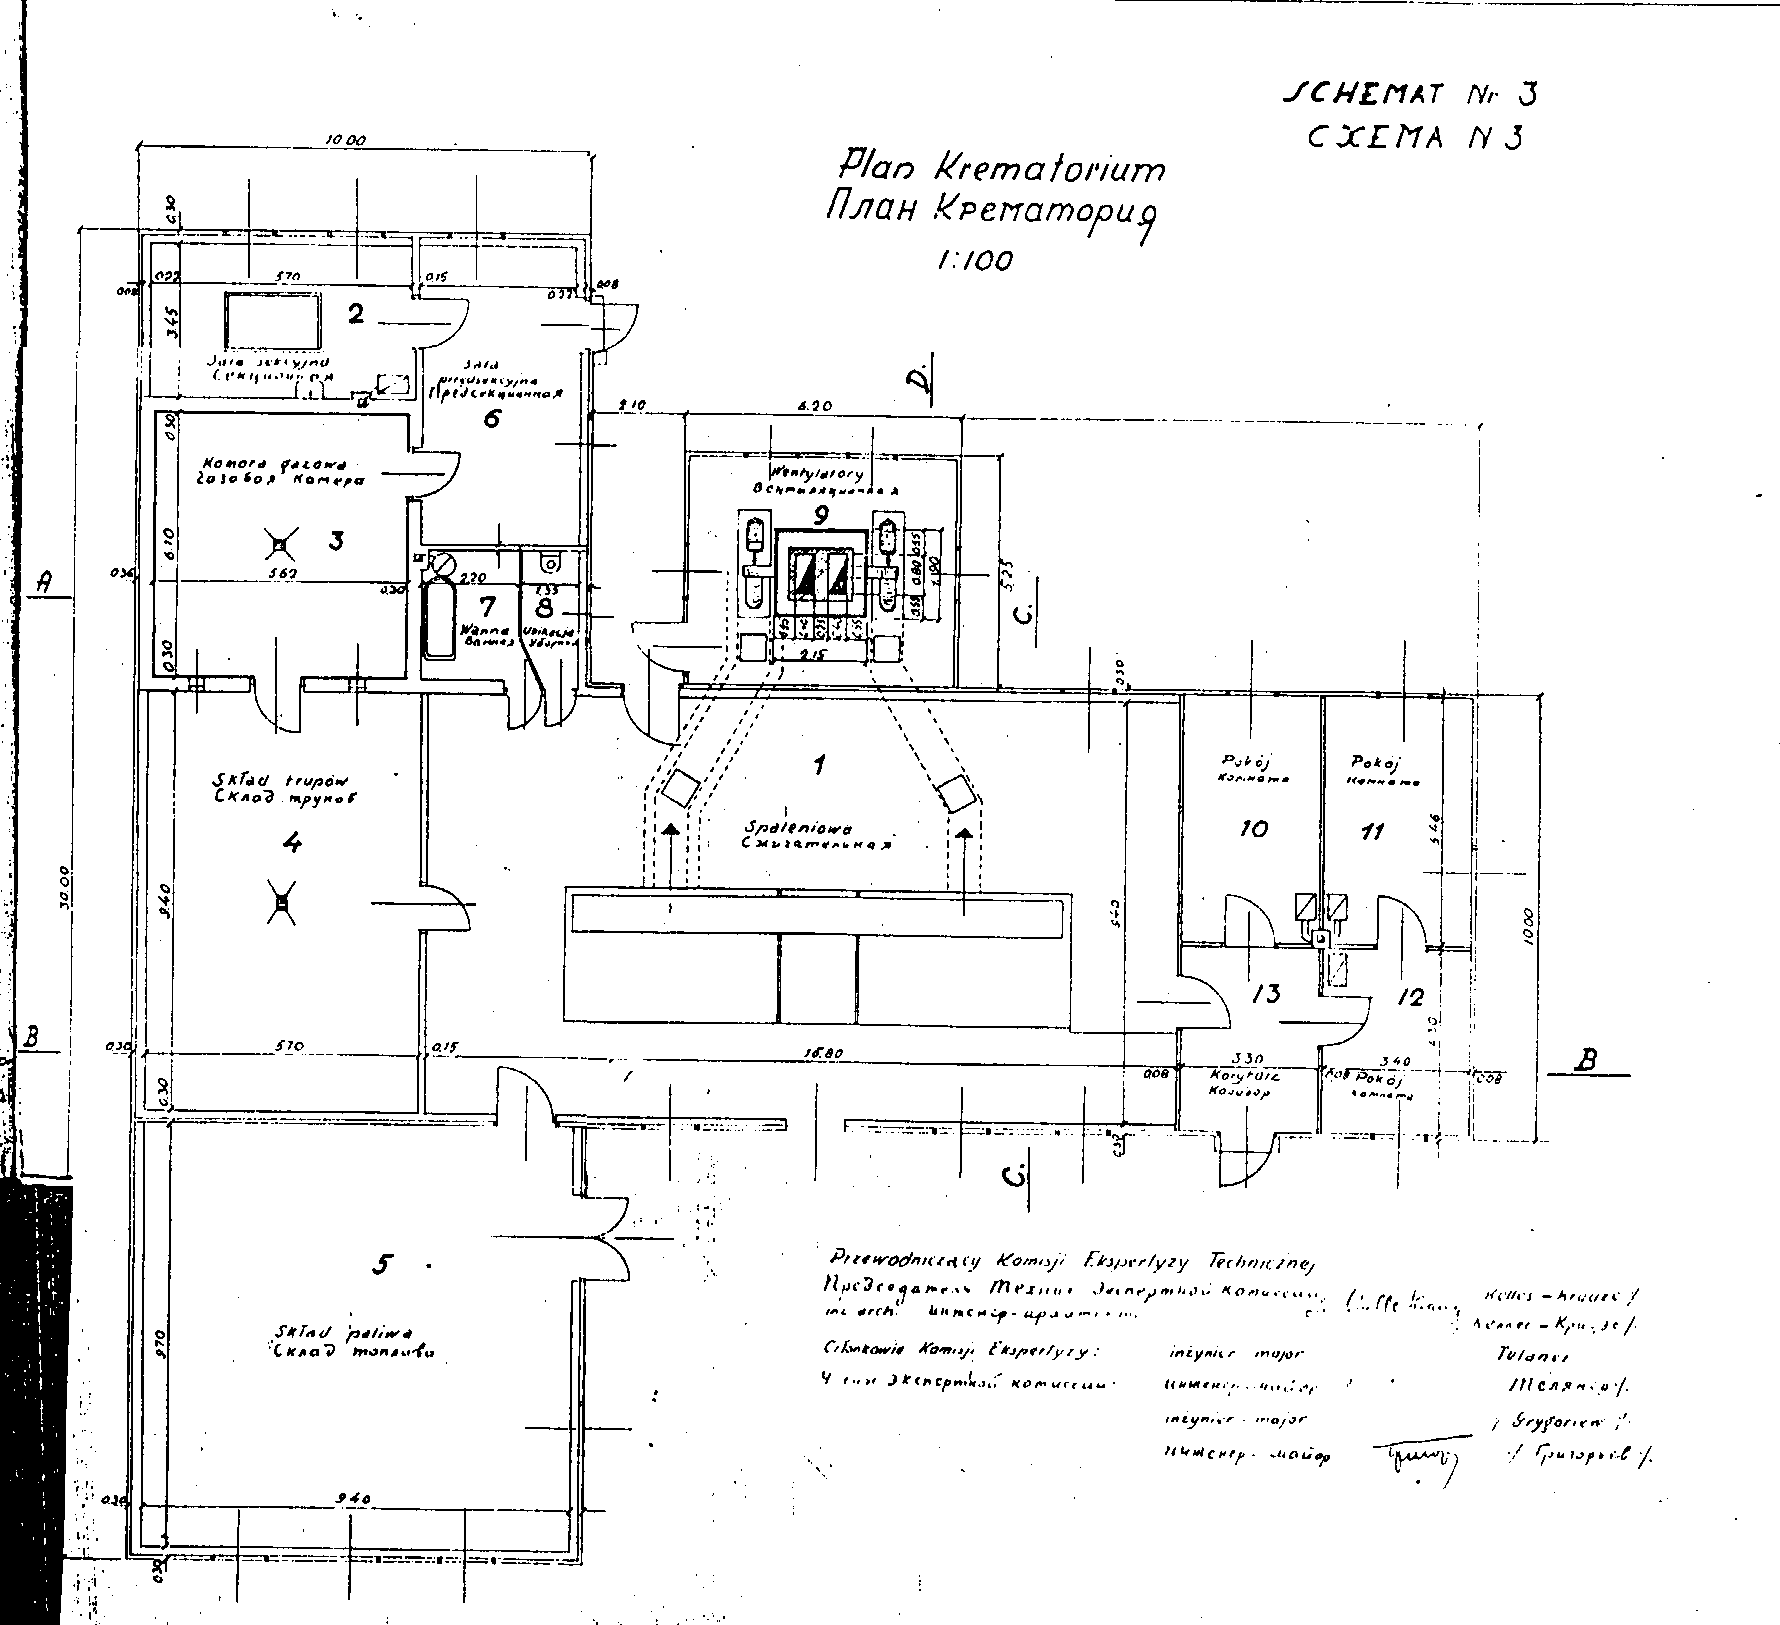 SCHEMAT Nr 3
СХЕМА N 3
Plan Krematorium
План Крематория
1:100
10.00
0.30
0.22
5.70
0.15
0.08
0.22
0.08
3.45
2
Sala sekcyjna
Секционная
Sala
przedsekcyjna
Предсекционная
6
0.50
2.10
6.20
D.
Komora gazowa
Газовая камера
3
6.10
5.62
0.36
0.30
0.30
A
2.20
1.35
7
8
Wanna
Ванная
Ubikacja
Уборная
Wentylatory
Вентиляционная
9
0.55
0.80
0.55
1.90
5.25
2.15
C.
0.50
Skład trupów
Склад трупов
4
9.40
30.00
1
Spaleniowa
Сжигательная
9.40
Pokój
Комната
10
Pokój
Комната
11
5.46
10.00
13
12
4.30
B
0.30
5.70
0.15
16.80
0.08
3.30
Korytarz
Коридор
0.08
3.40
Pokój
Комната
0.08
B
0.30
0.30
C.
5
Skład paliwa
Склад топлива
9.70
9.40
0.30
0.30
Przewodniczący Komisji Ekspertyzy Technicznej
Председатель Технич Экспертной комиссии
inż arch. инженер-архитект.
Kelles-Krauze /.
Келлес-Краузе /.
Członkowie Komisji Ekspertyzy: inżynier major
Член Экспертной комиссии: инженер-майор Телянер /.
inżynier-major / Grygoriew /.
инженер-майор ./ Григорьев /.